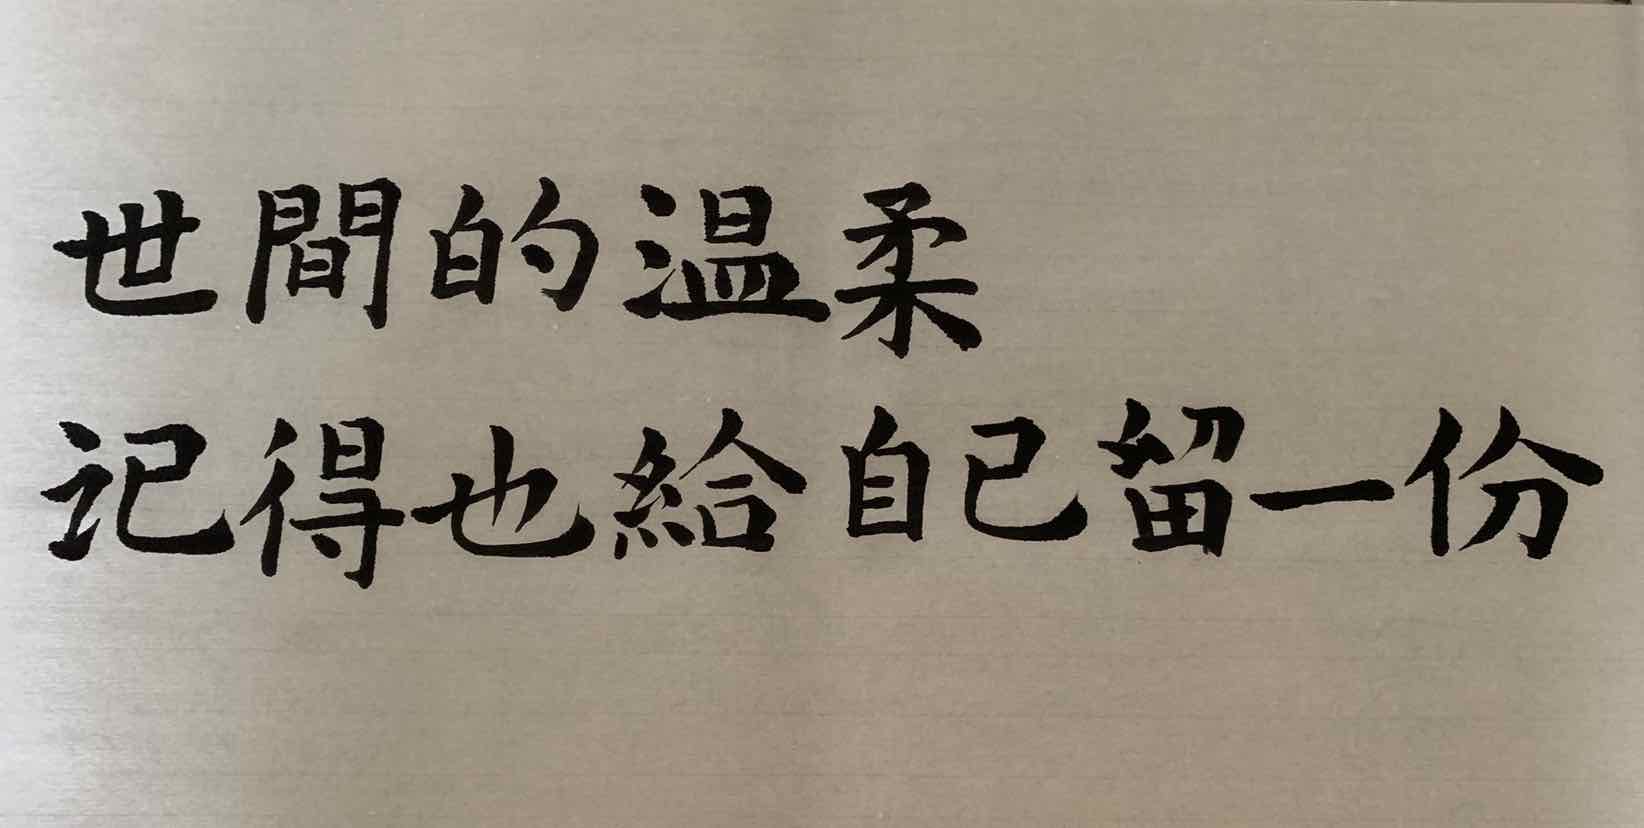 世間的温柔
记得也給自己留一份